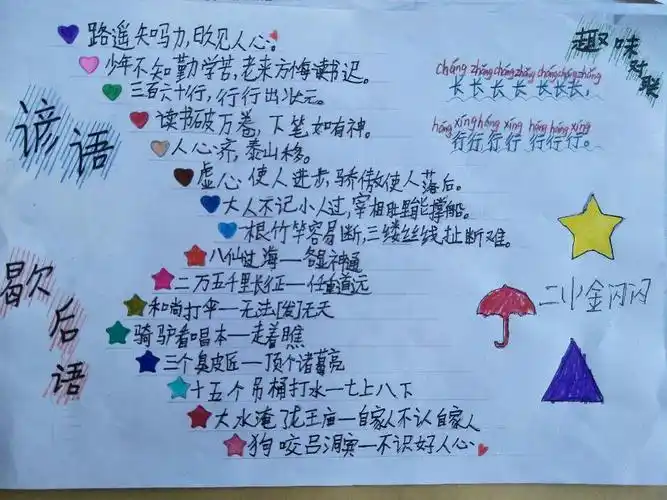 趣味对联
谚语
路遥知吗力,日久见人心。
少年不知勤学苦,老来方悔读书迟。
三百六十行,行行出状元。
读书破万卷,下笔如有神。
人心齐,泰山移。
虚心使人进步,骄傲使人落后。
大人不记小人过,宰相肚里能撑船。
一根竹竿容易断,三缕丝线扯断难。
cháng zhǎng cháng zhǎng cháng cháng zhǎng
长长长长长长长。
háng xíng háng xíng háng háng xíng
行行行行行行行。
歇后语
八仙过海—各显神通
二万五千里长征—任重道远
和尚打伞—无法[发]无天
骑驴看唱本—走着瞧
三个臭皮匠—顶个诸葛亮
十五个吊桶打水—七上八下
大水淹龙王庙—自家人不认自家人
狗咬吕洞宾—不识好人心
二小金闪闪